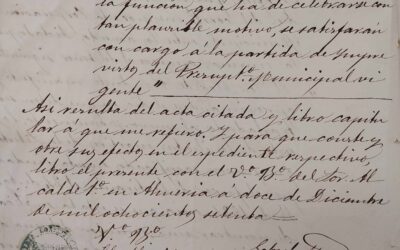 la función que ha de celebrarse con
tan plausible motivo, se satisfarán
con cargo á la partida de Impre
vistos del Presupto. municipal vi
gente"
Asi resulta del acta citada y libro capitu
lar á que me refiero. Y para que conste y
obre sus efectos en el espediente respectivo,
libro el presente con el Vº. Bº. del Sor. Al
calde 1º. en Almeria á doce de Diciembre
de mil ochocientos setenta
Vº. Bº.